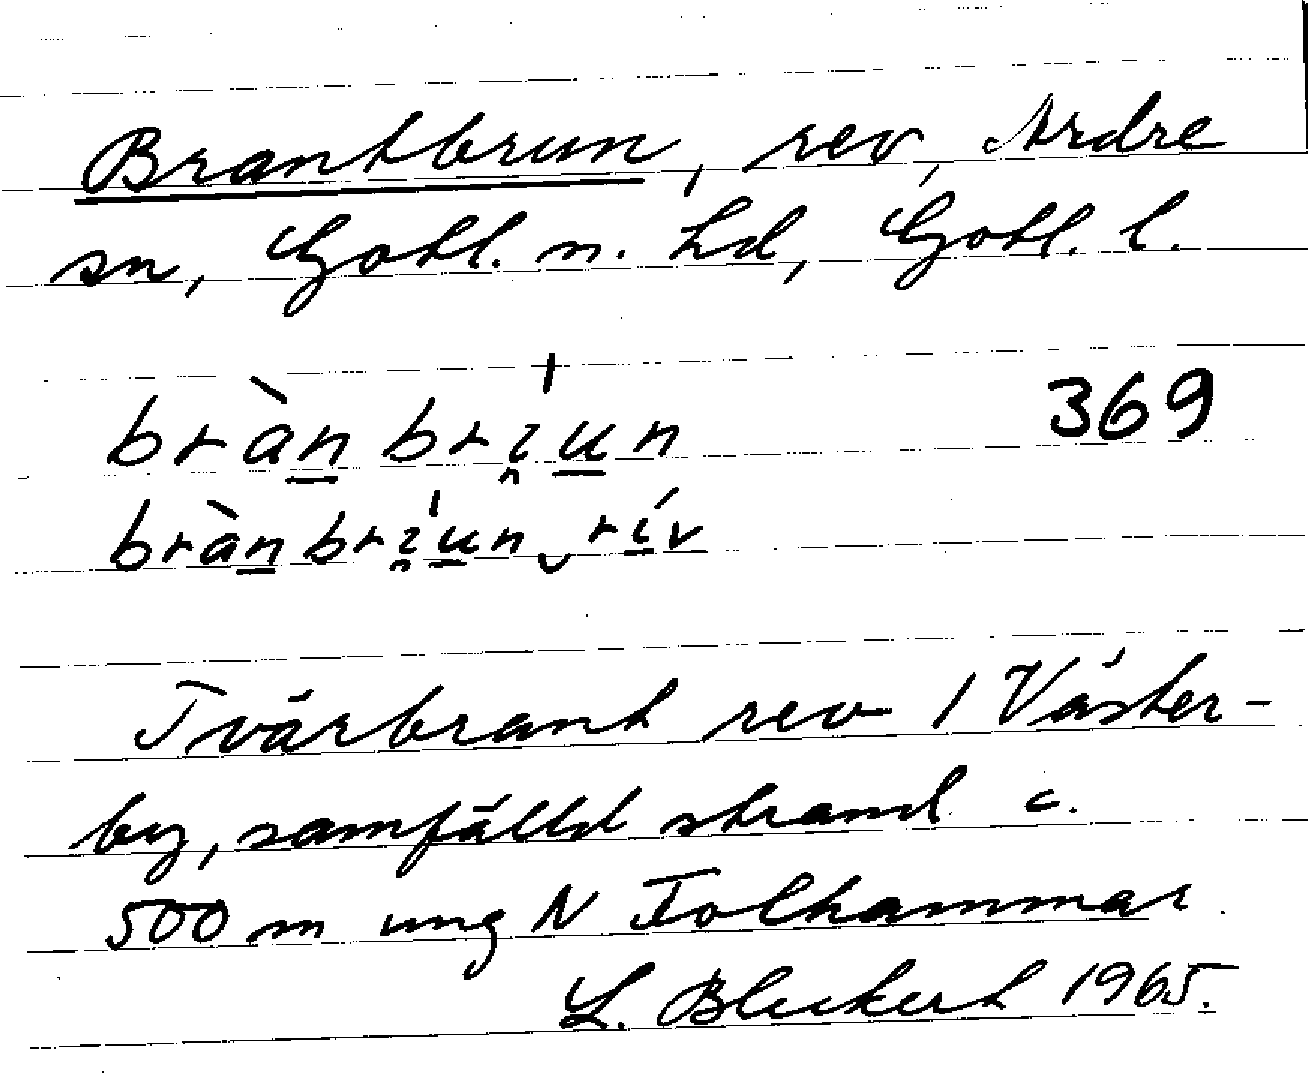 Brantbrun, rev, Ardre
sn, Gotl. n. hd, Gotl. l.
bràn brı̯́un 369
bràn brı̯́un‿rív
Tvärbrant rev / Väster-
by, samfälld strand c.
500 m ung N Folhammar
L. Bleckert 1965.